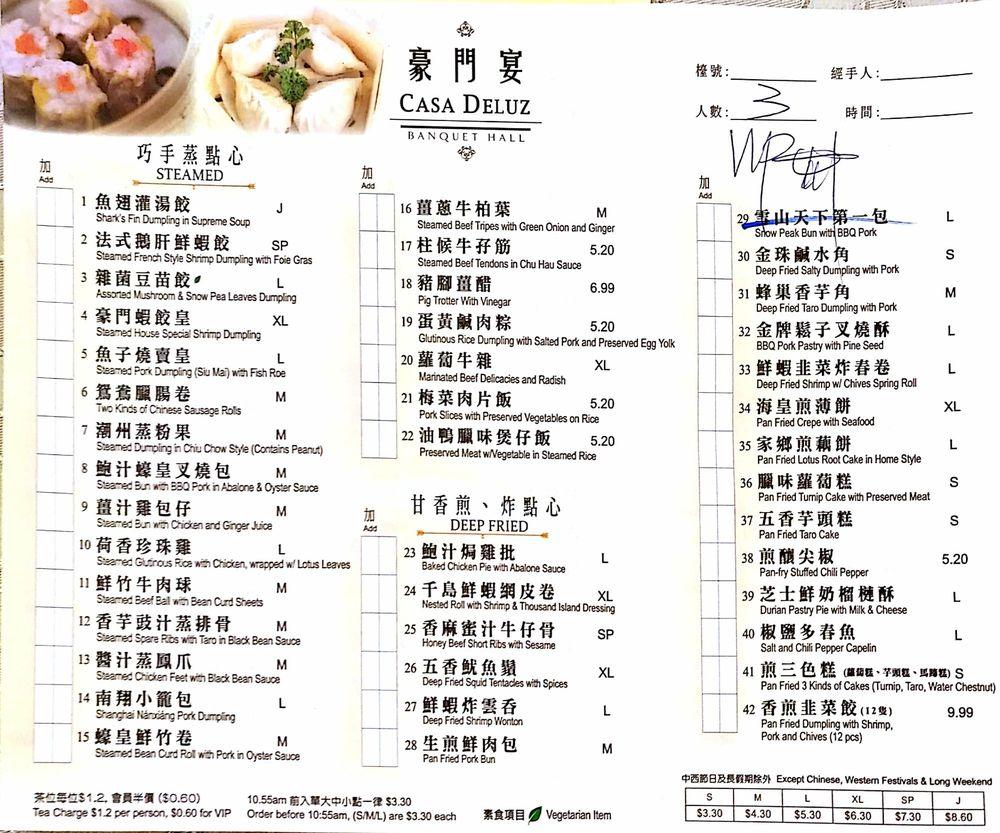 豪門宴
CASA DELUZ
BANQUET HALL
檯號: 經手人:
人數: 3 時間:
巧手蒸點心
STEAMED
加
Add
1 魚翅灌湯餃 J
Shark's Fin Dumpling in Supreme Soup
2 法式鵝肝鮮蝦餃 SP
Steamed French Style Shrimp Dumpling with Foie Gras
3 雜菌豆苗餃 L
Assorted Mushroom & Snow Pea Leaves Dumpling
4 豪門蝦餃皇 XL
Steamed House Special Shrimp Dumpling
5 魚子燒賣皇 L
Steamed Pork Dumpling (Siu Mai) with Fish Roe
6 鴛鴦臘腸卷 M
Two Kinds of Chinese Sausage Rolls
7 潮州蒸粉果 M
Steamed Dumpling in Chiu Chow Style (Contains Peanut)
8 鮑汁蠔皇叉燒包 M
Steamed Bun with BBQ Pork in Abalone & Oyster Sauce
9 薑汁雞包仔 M
Steamed Bun with Chicken and Ginger Juice
10 荷香珍珠雞 L
Steamed Glutinous Rice with Chicken, wrapped w/ Lotus Leaves
11 鮮竹牛肉球 M
Steamed Beef Ball with Bean Curd Sheets
12 香芋豉汁蒸排骨 M
Steamed Spare Ribs with Taro in Black Bean Sauce
13 醬汁蒸鳳爪 M
Steamed Chicken Feet with Black Bean Sauce
14 南翔小籠包 L
Shanghai Nanxiang Pork Dumpling
15 蠔皇鮮竹卷 M
Steamed Bean Curd Roll with Pork in Oyster Sauce
加
Add
16 薑蔥牛柏葉 M
Steamed Beef Tripes with Green Onion and Ginger
17 柱候牛孖筋 5.20
Steamed Beef Tendons in Chu Hau Sauce
18 豬腳薑醋 6.99
Pig Trotter With Vinegar
19 蛋黃鹹肉粽 5.20
Glutinous Rice Dumpling with Salted Pork and Preserved Egg Yolk
20 蘿蔔牛雜 XL
Marinated Beef Delicacies and Radish
21 梅菜肉片飯 5.20
Pork Slices with Preserved Vegetables on Rice
22 油鴨臘味煲仔飯 5.20
Preserved Meat w/Vegetable in Steamed Rice
甘香煎、炸點心
DEEP FRIED
加
Add
23 鮑汁焗雞批 L
Baked Chicken Pie with Abalone Sauce
24 千島鮮蝦網皮卷 XL
Nested Roll with Shrimp & Thousand Island Dressing
25 香麻蜜汁牛仔骨 SP
Honey Beef Short Ribs with Sesame
26 五香魷魚鬚 XL
Deep Fried Squid Tentacles with Spices
27 鮮蝦炸雲吞 L
Deep Fried Shrimp Wonton
28 生煎鮮肉包 M
Pan Fried Pork Bun
加
Add
29 雪山天下第一包 L
Snow Peak Bun with BBQ Pork
30 金珠鹹水角 S
Deep Fried Salty Dumpling with Pork
31 蜂巢香芋角 M
Deep Fried Taro Dumpling with Pork
32 金牌鬆子叉燒酥 L
BBQ Pork Pastry with Pine Seed
33 鮮蝦韭菜炸春卷 L
Deep Fried Shrimp w/ Chives Spring Roll
34 海皇煎薄餅 XL
Pan Fried Crepe with Seafood
35 家鄉煎藕餅 L
Pan Fried Lotus Root Cake in Home Style
36 臘味蘿蔔糕 S
Pan Fried Turnip Cake with Preserved Meat
37 五香芋頭糕 S
Pan Fried Taro Cake
38 煎釀尖椒 5.20
Pan-fry Stuffed Chili Pepper
39 芝士鮮奶榴槤酥 L
Durian Pastry Pie with Milk & Cheese
40 椒鹽多春魚 L
Salt and Chili Pepper Capelin
41 煎三色糕 (蘿蔔糕、芋頭糕、馬蹄糕) S
Pan Fried 3 Kinds of Cakes (Turnip, Taro, Water Chestnut)
42 香煎韭菜餃 (12隻) 9.99
Pan Fried Dumpling with Shrimp,
Pork and Chives (12 pcs)
茶位每位$1.2, 會員半價 ($0.60)
Tea Charge $1.2 per person, $0.60 for VIP
10.55am 前入單大中小點一律 $3.30
Order before 10:55am, (S/M/L) are $3.30 each
素食項目 Vegetarian Item
中西節日及長假期除外 Except Chinese, Western Festivals & Long Weekend
S M L XL SP J
$3.30 $4.30 $5.30 $6.30 $7.30 $8.60